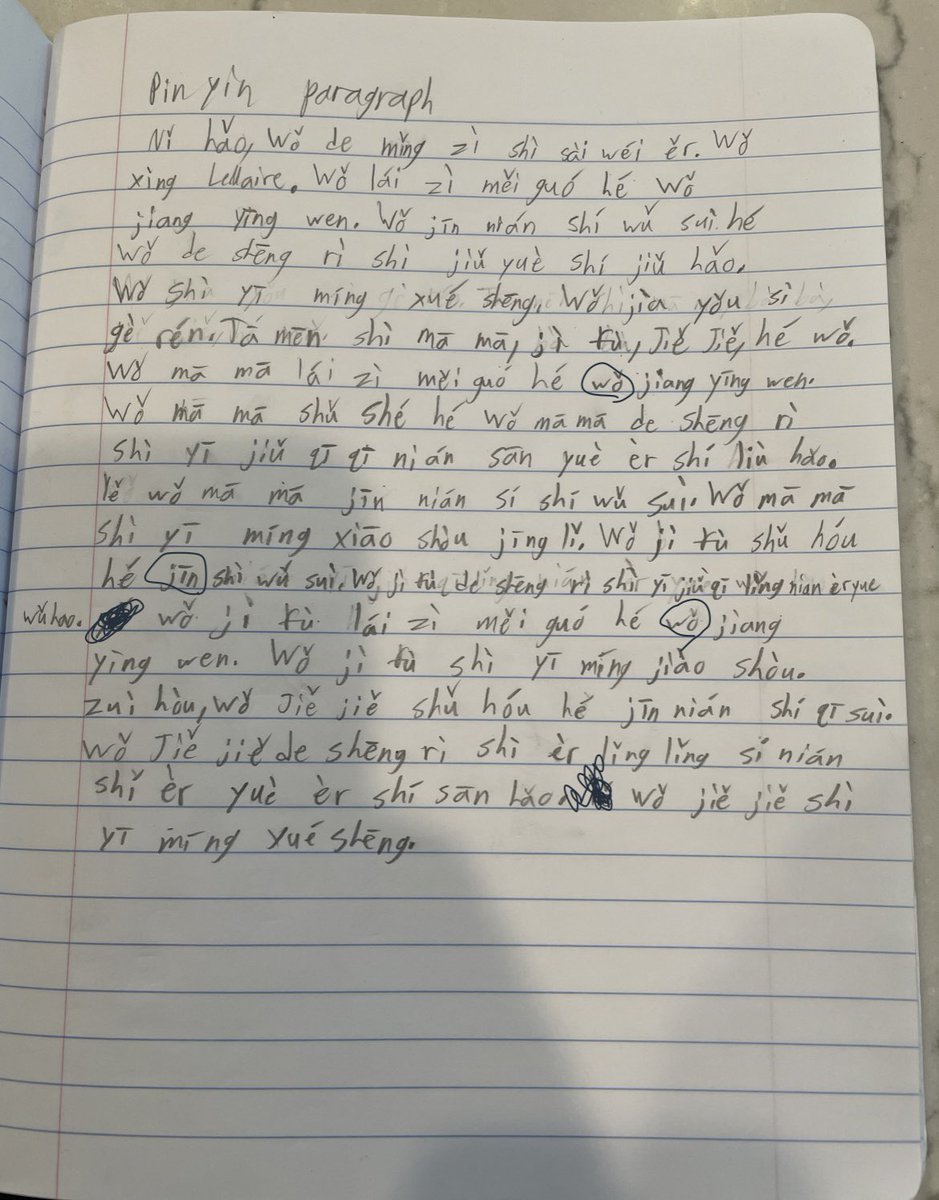 Pin yin paragraph
Nǐ hǎo, Wǒ de mǐng zì shì sài wéi ěr. Wǒ
xìng Lellaire. Wǒ lái zì měi guó hé Wǒ
jiang yīng wen. Wǒ jīn nián shí wǔ suì hé
Wǒ de shēng rì shì jiǔ yuè shí jiǔ hǎo.
Wǒ Shì yī míng xué shēng. Wǒ jiā yǒu sì
gè rén. Tā mēn shì mā mā, jì tù, Jiě Jiě, hé wǒ.
Wǒ mā mā lái zì měi guó hé wǒ jiang yīng wen.
Wǒ mā mā shǔ Shé hé Wǒ mā mā de shēng rì
shì yī jiǔ qī qī nián sān yuè èr shí liù hǎo.
lě wǒ mā mā jīn nián sí shí wǔ suì. Wǒ mā mā
shì yī míng xiāo shòu jīng lǐ. Wǒ jì tù shǔ hóu
hé jīn shì wǔ suì. Wǒ jì tù de shēng rì shì yī jiǔ qī lǐng nian èr yue
wǔ hao. wǒ jì tù lái zì měi guó hé wǒ jiang
yīng wen. Wǒ jì tù shì yī míng jiào shòu.
zuì hòu, wǒ Jiě jiě shǔ hóu hé jīn nián shí qī suì.
Wǒ Jiě jiě de shēng rì shì èr lǐng lǐng sí nián
shǐ èr yuè èr shí sān hǎo. wǒ jiě jiě shì
yī míng xué shēng.